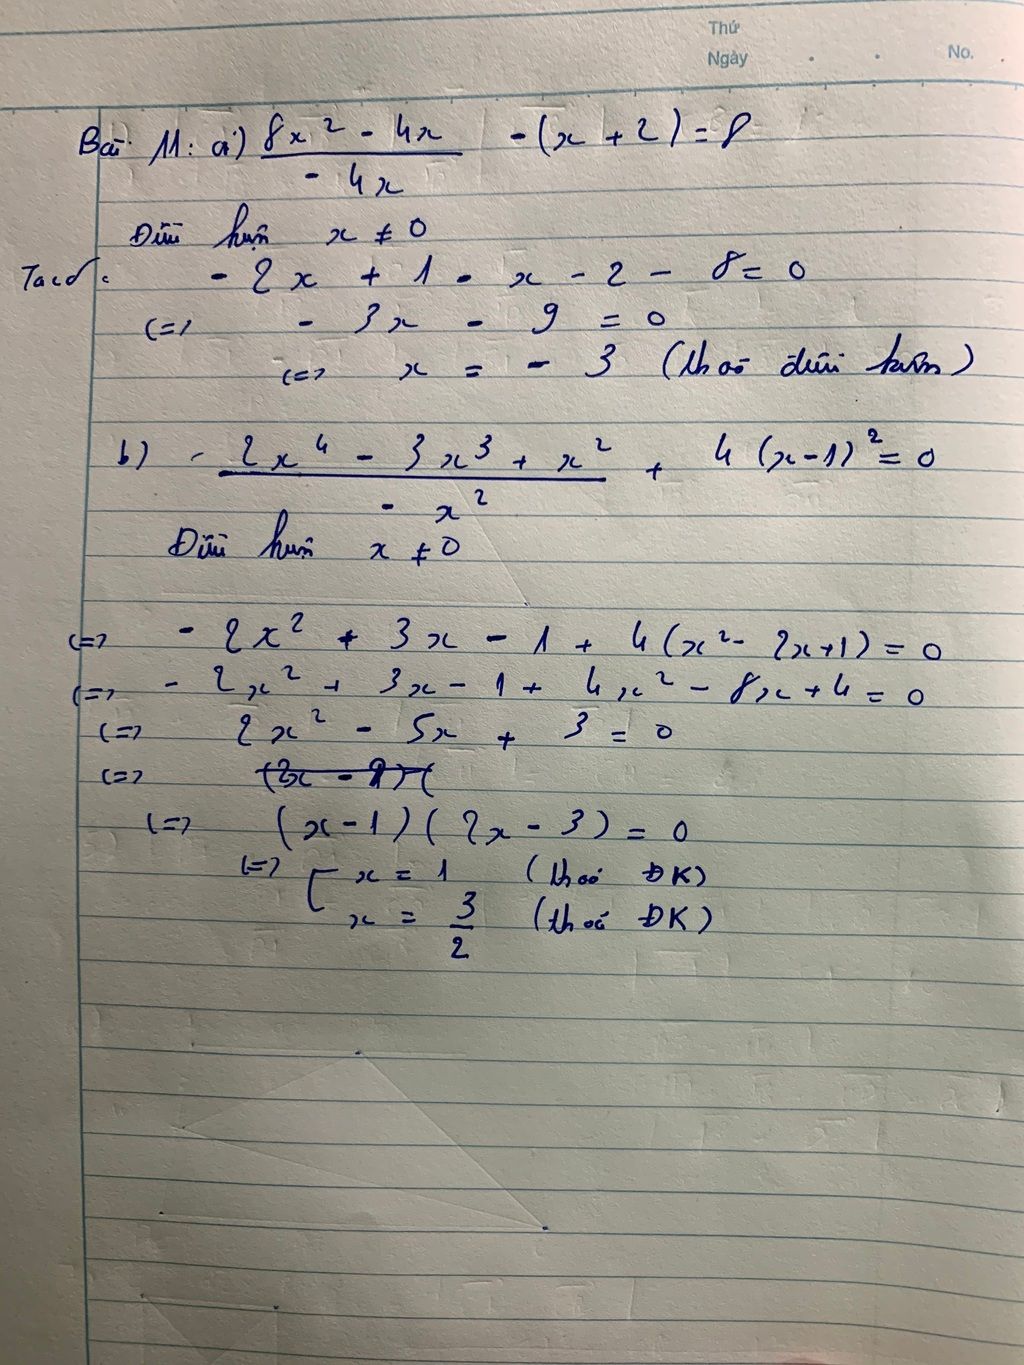 Thứ
Ngày . . No.
Bài 11: a) \frac{8x^2 - 4x}{-4x} - (x + 2) = 8
Điều kiện x ≠ 0
Ta có: - 2x + 1 - x - 2 - 8 = 0
(=> - 3x - 9 = 0
(=> x = - 3 (thoả điều kiện)
b) - \frac{2x^4 - 3x^3 + x^2}{- x^2} + 4(x-1)^2 = 0
Điều kiện x ≠ 0
(=> - 2x^2 + 3x - 1 + 4(x^2 - 2x + 1) = 0
(=> - 2x^2 + 3x - 1 + 4x^2 - 8x + 4 = 0
(=> 2x^2 - 5x + 3 = 0
(=>
(=> (x - 1)(2x - 3) = 0
(=> [ x = 1 (thoả ĐK)
x = \frac{3}{2} (thoả ĐK)